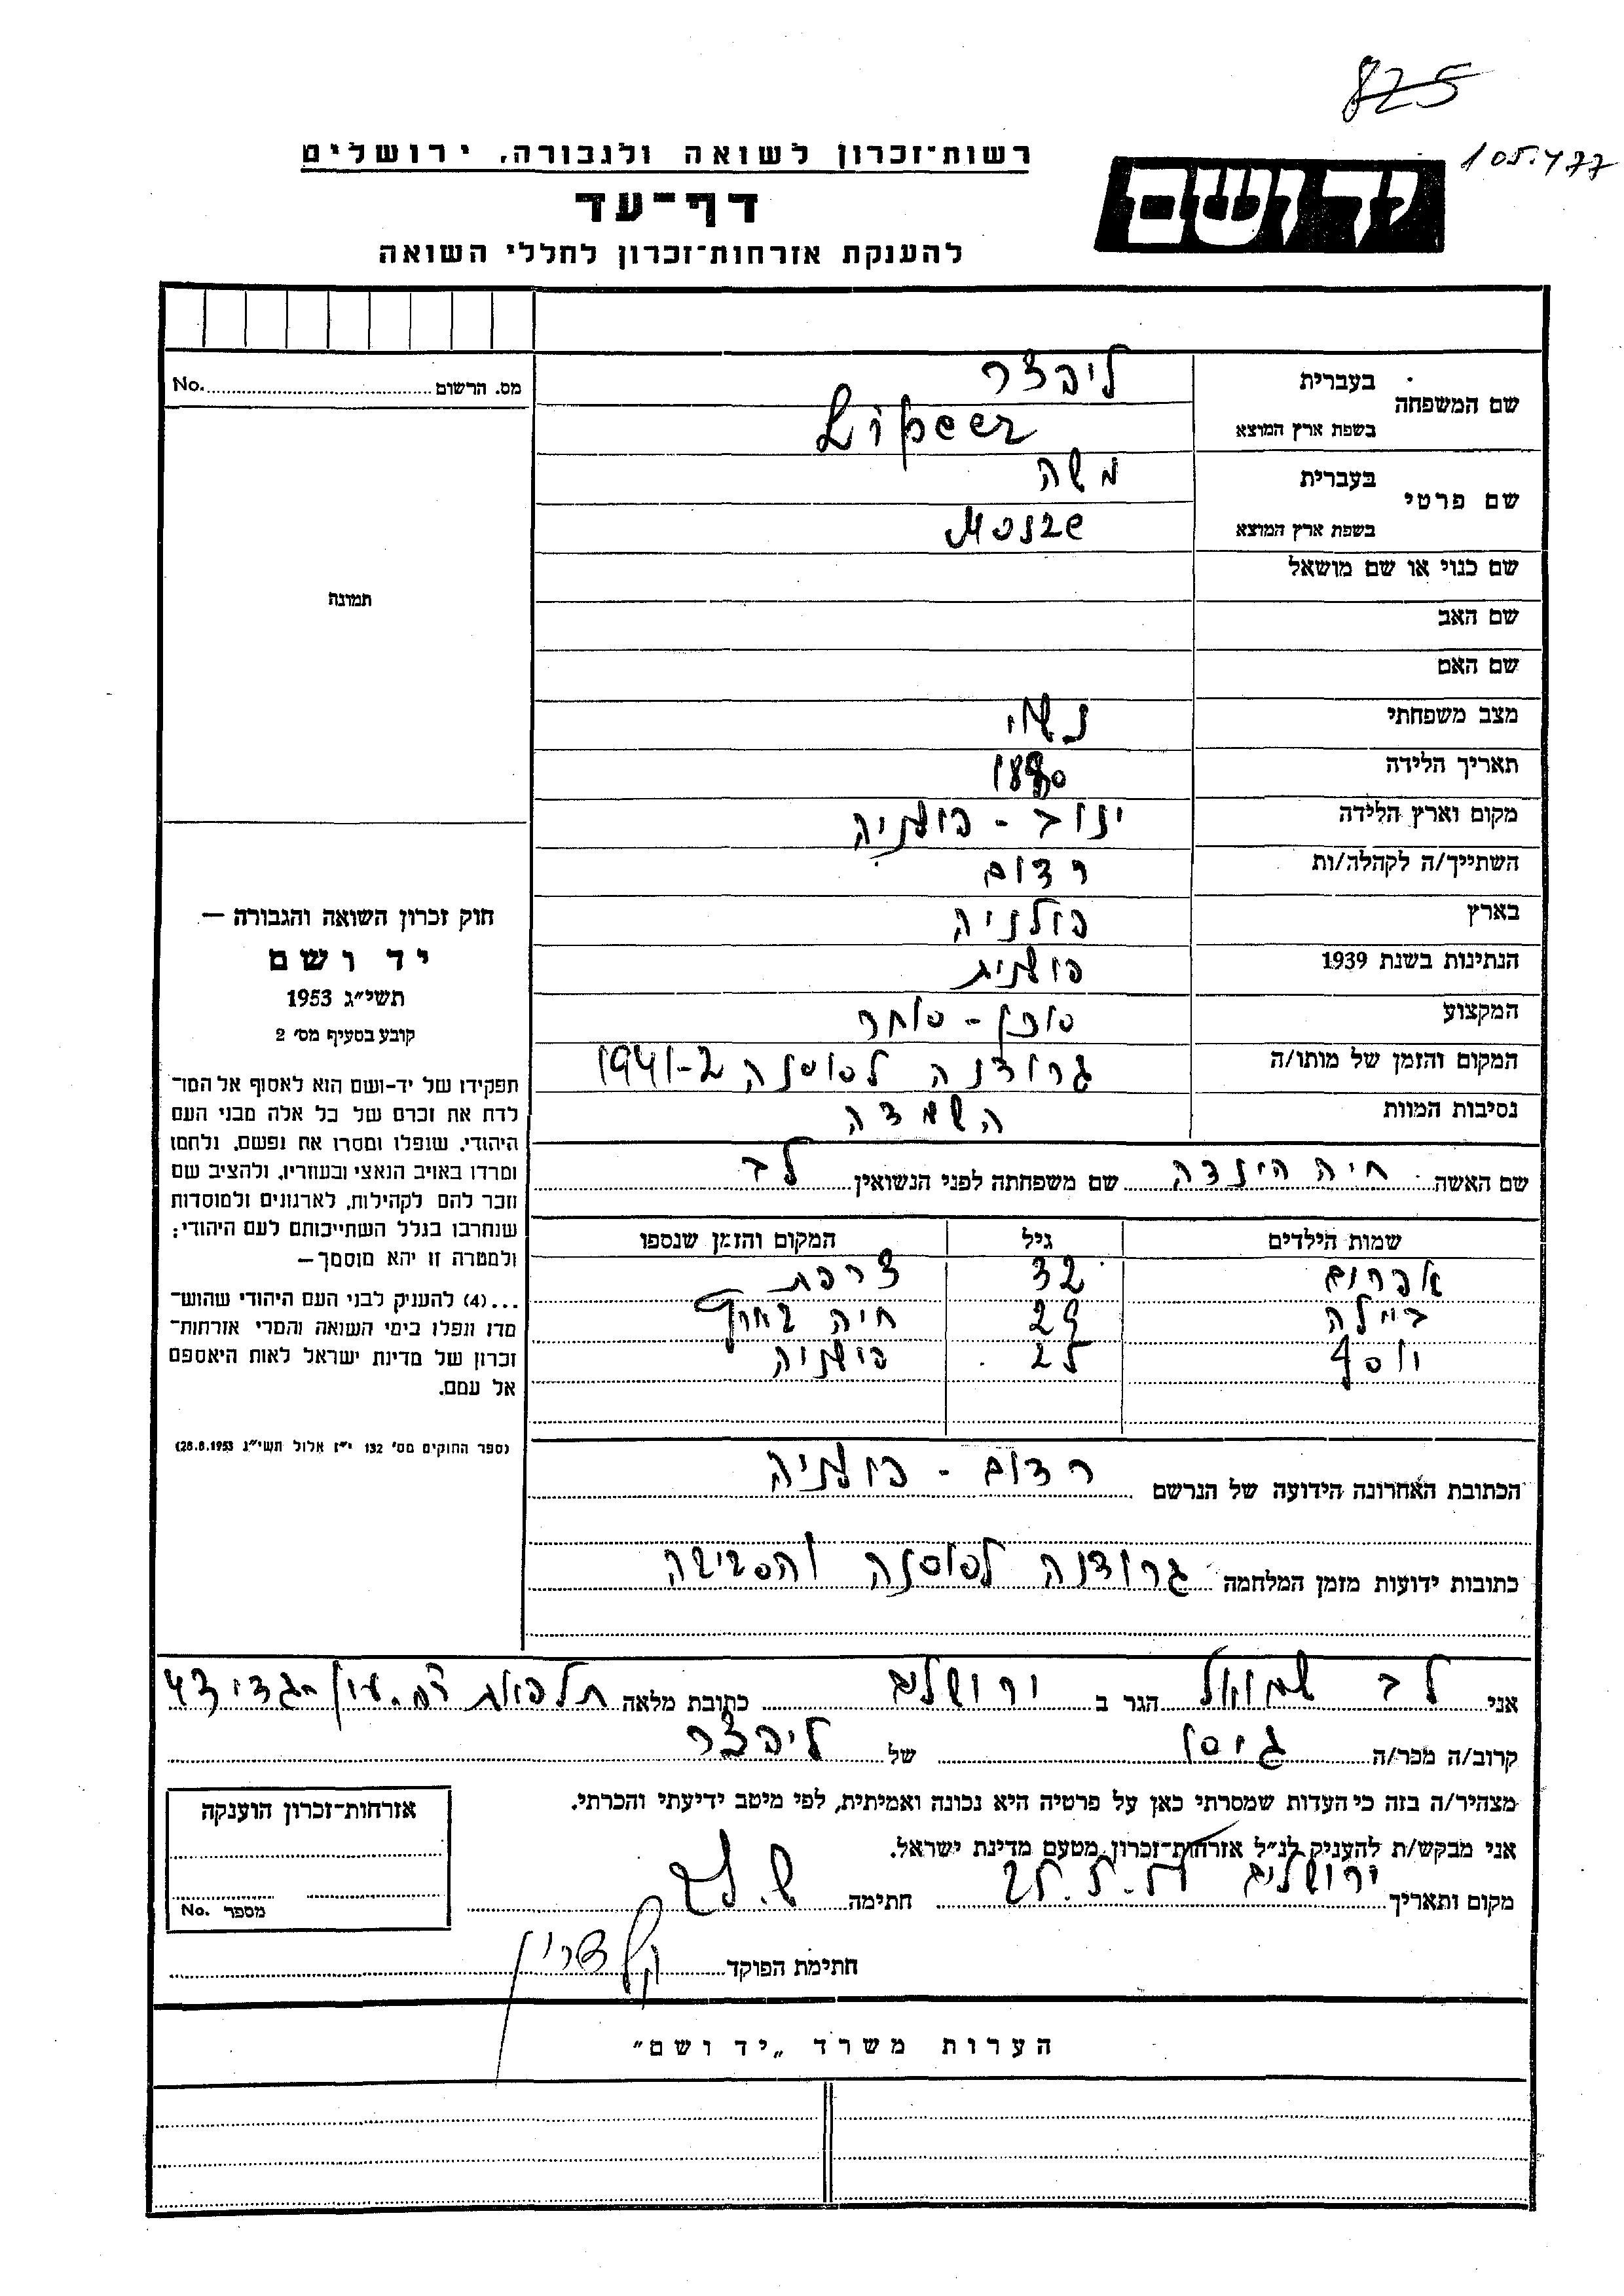 825
105477
רשות־זכרון לשואה ולגבורה, ירושלים
יד ושם
דף־עד
להענקת אזרחות־זכרון לחללי השואה
מס. הרשום No.
שם המשפחה בעברית ליפצר
בשפת ארץ המוצא Lipcer
שם פרטי בעברית משה
בשפת ארץ המוצא Mosze
שם כנוי או שם מושאל
שם האב
שם האם
מצב משפחתי נשוי
תאריך הלידה
מקום וארץ הלידה ינוב - פולניה
השתייך/ה לקהלה/ות רדום
בארץ פולניה
הנתינות בשנת 1939 פולנית
המקצוע סוכן - סוחר
המקום והזמן של מותו/ה 1941-2
נסיבות המוות השמדה
תמונה
חוק זכרון השואה והגבורה —
יד ושם
תשי״ג 1953
קובע בסעיף מס׳ 2
תפקידו של יד-ושם הוא לאסוף אל המו־
לדת את זכרם של כל אלה מבני העם
היהודי, שנפלו ומסרו את נפשם, נלחמו
ומרדו באויב הנאצי ובעוזריו, ולהציב שם
וזכר להם לקהילות, לארגונים ולמוסדות
שנחרבו בגלל השתייכותם לעם היהודי;
ולמטרה זו יהא מוסמך—
...(4) להעניק לבני העם היהודי שהוש־
מדו ונפלו בימי השואה והמרי אזרחות־
זכרון של מדינת ישראל לאות היאספם
אל עמם.
(ספר החוקים מס׳ 132 י״ז אלול תשי״ג 28.8.1953)
שם האשה חיה הינדה שם משפחתה לפני הנשואין לב
שמות הילדים גיל המקום והזמן שנספו
אפרום 32 צרפת
ביילה 29 חיה בארץ
יוסף 25 פולניה
הכתובת האחרונה הידועה של הנרשם רדום - פולניה
כתובות ידועות מזמן המלחמה והסביבה
אני לב שמואל הגר ב ירושלים כתובת מלאה תלפיות רח. עין-גדי 43
קרוב/ה מכר/ה גיסו של ליפצר
מצהיר/ה בזה כי העדות שמסרתי כאן על פרטיה היא נכונה ואמיתית, לפי מיטב ידיעתי והכרתי.
אני מבקש/ת להעניק לנ״ל אזרחות־זכרון מטעם מדינת ישראל.
מקום ותאריך ירושלים חתימה ש. לב
חתימת הפוקד
אזרחות־זכרון הוענקה
מספר No.
הערות משרד „יד ושם״